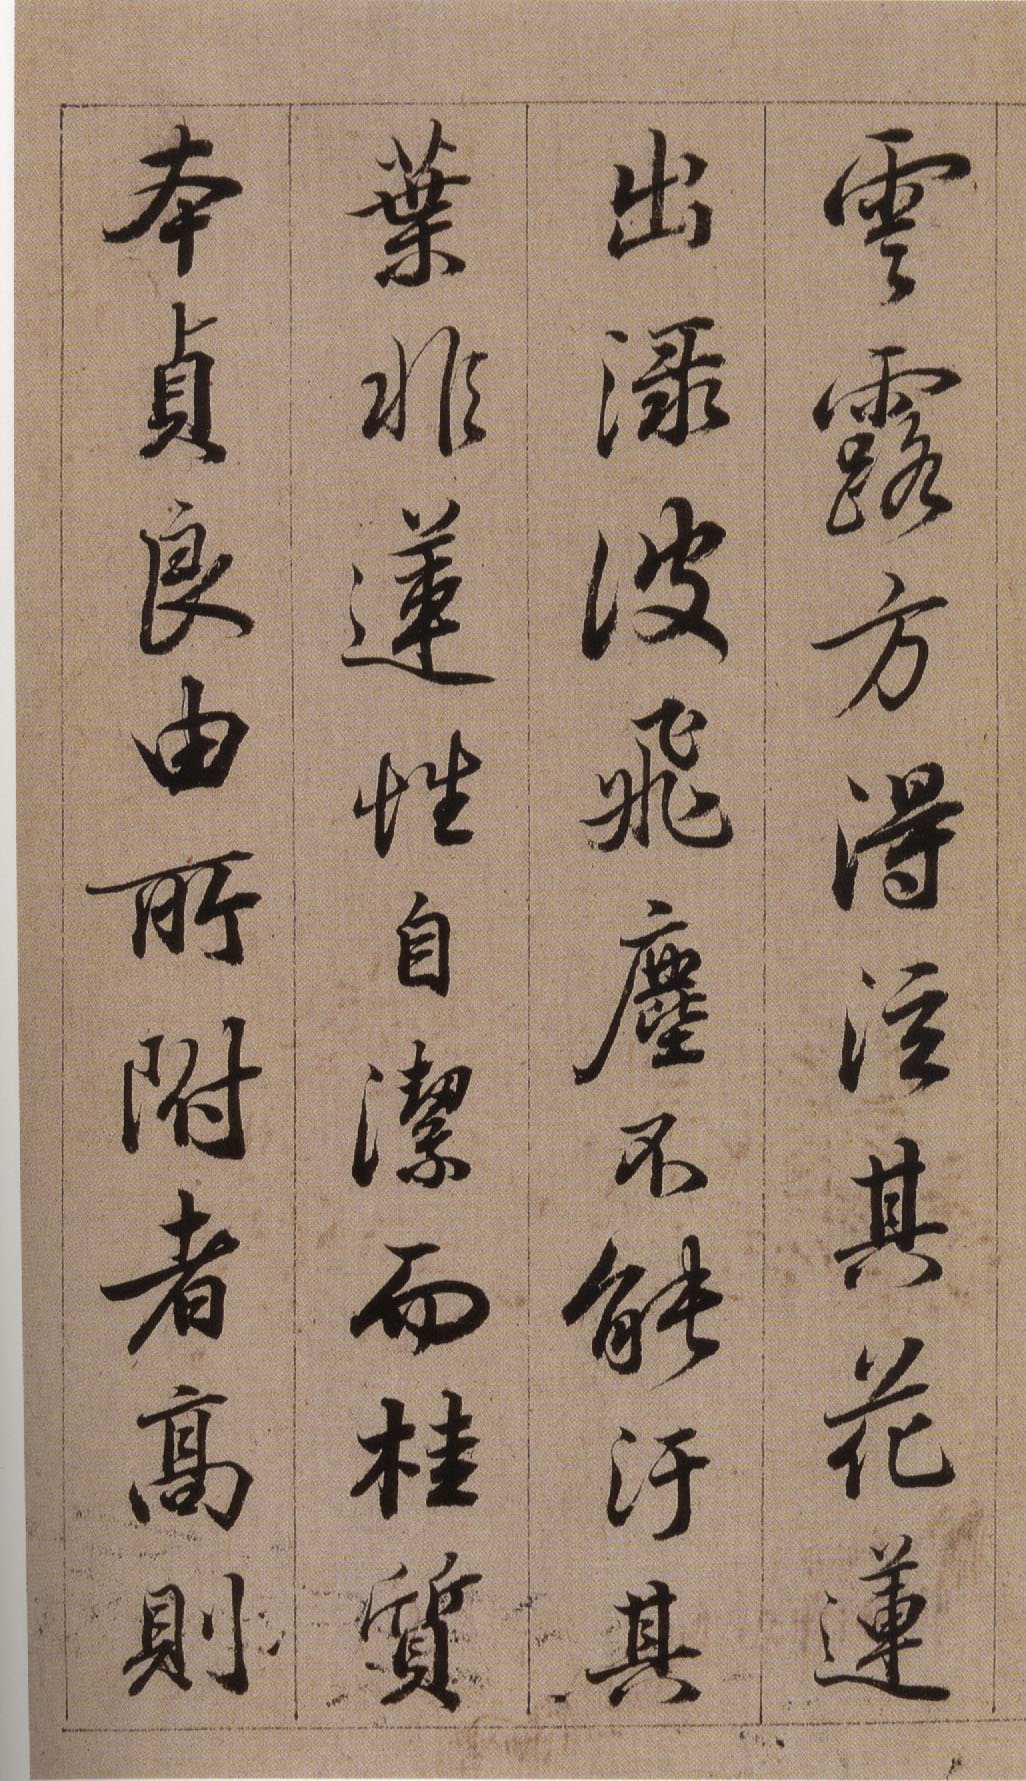 雲露方得泫其花蓮
出淥波飛塵不能汙其
葉非蓮性自潔而桂質
本貞良由所附者高則